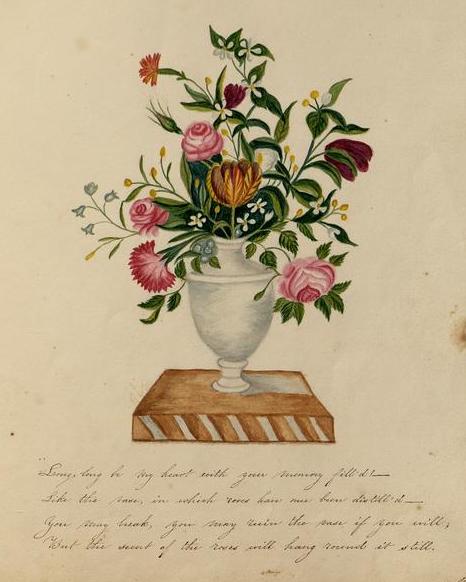 "Long, long be my heart with your memory fill'd!—
Like the vase, in which roses have once been distill'd—
You may break, you may ruin the vase if you will,
But the scent of the roses will hang round it still.